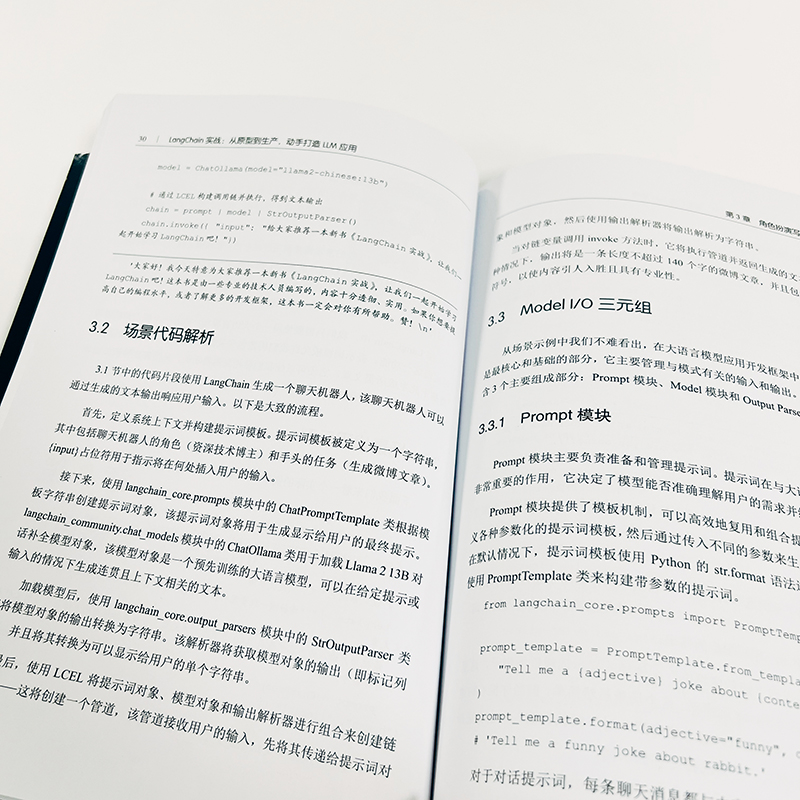 30 | LangChain 实战：从原型到生产，动手打造 LLM 应用
model = ChatOllama(model="llama2-chinese:13b")
# 通过 LCEL 构建调用链并执行，得到文本输出
chain = prompt | model | StrOutputParser()
chain.invoke({ "input": "给大家推荐一本新书《LangChain 实战》，让我们一
起开始学习 LangChain 吧！"})
'大家好！我今天特意为大家推荐一本新书《LangChain 实战》，让我们一起开始学习
LangChain 吧！这本书是由一些专业的技术人员编写的，内容十分透彻、实用。如果你想要提
高自己的编程水平，或者了解更多的开发框架，这本书一定会对你有所帮助。赞！\n'
3.2 场景代码解析
3.1 节中的代码片段使用 LangChain 生成一个聊天机器人，该聊天机器人可以
通过生成的文本输出响应用户输入。以下是大致的流程。
首先，定义系统上下文并构建提示词模板。提示词模板被定义为一个字符串，
其中包括聊天机器人的角色（资深技术博主）和手头的任务（生成微博文章）。
{input}占位符用于指示将在何处插入用户的输入。
接下来，使用 langchain_core.prompts 模块中的 ChatPromptTemplate 类根据模
板字符串创建提示词对象，该提示词对象将用于生成显示给用户的最终提示。
langchain_community.chat_models 模块中的 ChatOllama 类用于加载 Llama 2 13B 对
话补全模型对象，该模型对象是一个预先训练的大语言模型，可以在给定提示或
输入的情况下生成连贯且上下文相关的文本。
加载模型后，使用 langchain_core.output_parsers 模块中的 StrOutputParser 类
将模型对象的输出转换为字符串。该解析器将获取模型对象的输出（即标记列
并且将其转换为可以显示给用户的单个字符串。
后，使用 LCEL 将提示词对象、模型对象和输出解析器进行组合来创建链
——这将创建一个管道，该管道接收用户的输入，先将其传递给提示词对
第 3 章 角色扮演写
象和模型对象，然后使用输出解析器将输出解析为字符串。
当对链变量调用 invoke 方法时，它将执行管道并返回生成的文
种情况下，输出将是一条长度不超过 140 个字的微博文章，并且包
符号，以使内容引人入胜且具有专业性。
3.3 Model I/O 三元组
从场景示例中我们不难看出，在大语言模型应用开发框架中
是最核心和基础的部分，它主要管理与模式有关的输入和输出。
含 3 个主要组成部分：Prompt 模块、Model 模块和 Output Pars
3.3.1 Prompt 模块
Prompt 模块主要负责准备和管理提示词。提示词在与大语
非常重要的作用，它决定了模型能否准确理解用户的需求并
Prompt 模块提供了模板机制，可以高效地复用和组合提
义各种参数化的提示词模板，然后通过传入不同的参数来生
在默认情况下，提示词模板使用 Python 的 str.format 语法
使用 PromptTemplate 类来构建带参数的提示词。
from langchain_core.prompts import PromptTemp
prompt_template = PromptTemplate.from_templa
"Tell me a {adjective} joke about {conte
)
prompt_template.format(adjective="funny", c
# 'Tell me a funny joke about rabbit.'
对于对话提示词，每条聊天消息都与